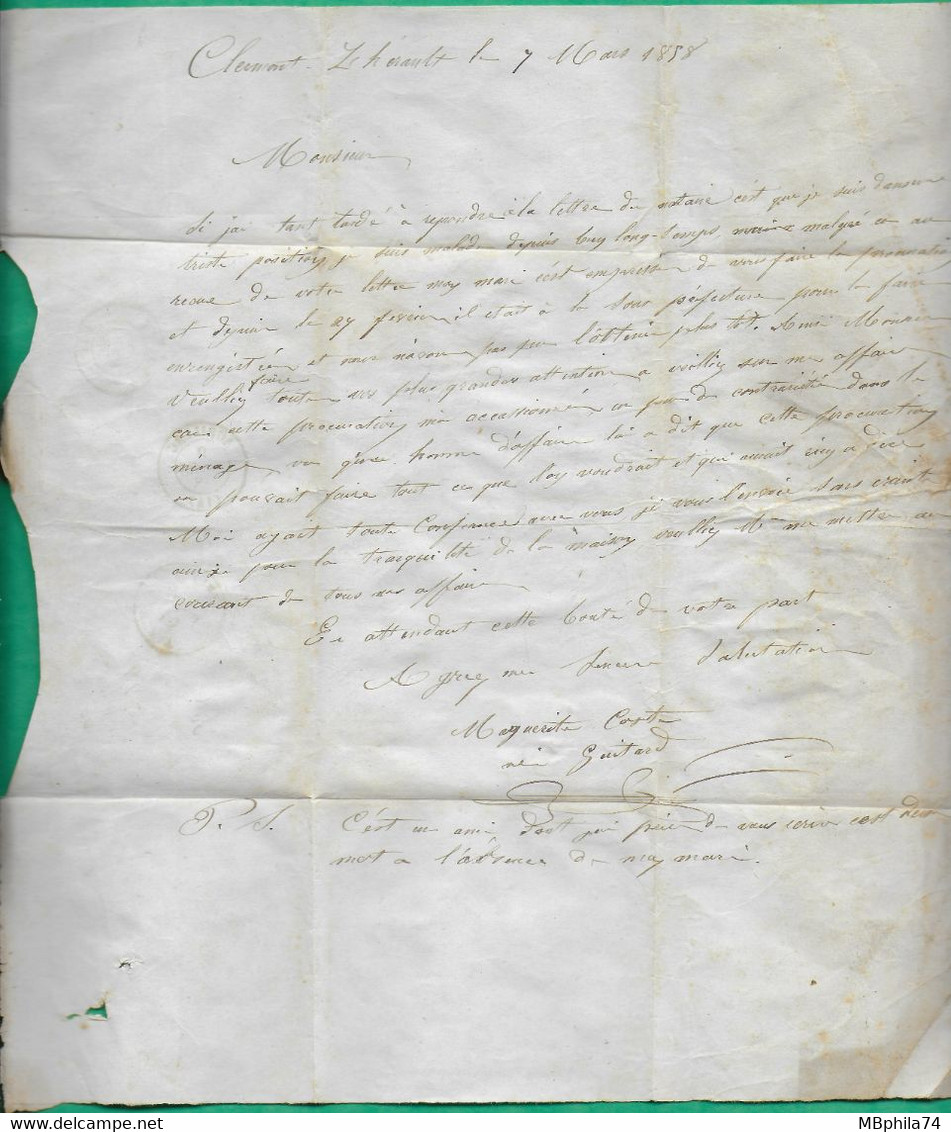 Clermont-L'hérault le 7 Mars 1858
Monsieur
Si j'ai tant tardé à repondre à la lettre du notaire c'est que je suis dans un
triste position je suis malade depuis bien long-temps, malgré ce au
recue de votre lettre mon mari c'est empresser de vous faire la procuration
et depuis le 27 fevrier il était à la Sous préfecture pour la faire
enregistrée et nous navon pas pu l'obtenir plus tot. Ainsi Monsieur
Veuillez faire toute vos plus grandes attention a veillez sur mes affaire
car cette procuration m'a occassionné un peu de contrariété dans le
ménage vu qu'un homme d'affaire lui a dit que cette procuration
on pouvait faire tout ce que l'on voudrait et qui avait rien a dire
Moi ayait toute Confience avec vous je vous l'envoie sans crainte
ainsi pour la tranquilité de la maison veuillez me mettre au
courant de tous mes affaire
En attendant cette bonté de votre part
Agreez mes sincere Salutation
Maguerite Coste
née Guitard
P. S. C'est un ami dont j'ai prié de vous écrire cest deux
mot a l'absence de mon mari.
MBphila74